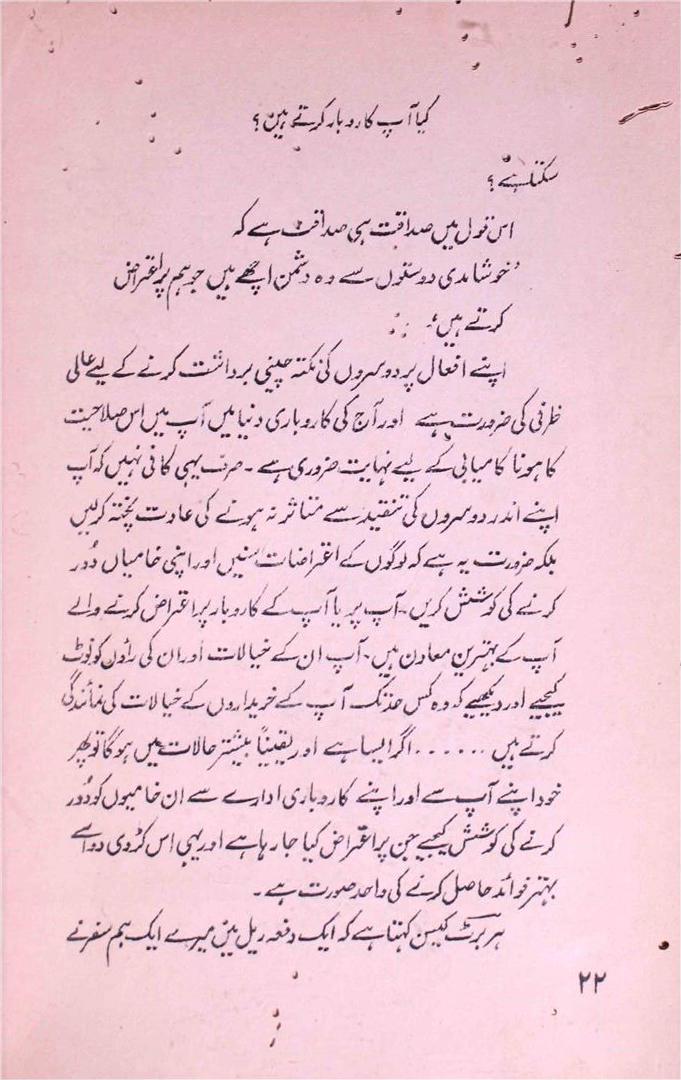 کیا آپ کاروبار کرتے ہیں؟
سکتا ہے؟
اس قول میں صداقت ہی صداقت ہے کہ
’خوشامدی دوستوں سے وہ دشمن اچھے ہیں جو ہم پر اعتراض
کرتے ہیں‘۔
اپنے افعال پر دوسروں کی نکتہ چینی برداشت کرنے کے لیے عالی
ظرفی کی ضرورت ہے اور آج کی کاروباری دنیا میں آپ میں اس صلاحیت
کا ہونا کامیابی کے لیے نہایت ضروری ہے۔ صرف یہی کافی نہیں کہ آپ
اپنے اندر دوسروں کی تنقید سے متاثر نہ ہونے کی عادت پختہ کر لیں
بلکہ ضرورت یہ ہے کہ لوگوں کے اعتراضات سنیں اور اپنی خامیاں دُور
کرنے کی کوشش کریں۔ آپ پر یا آپ کے کاروبار پر اعتراض کرنے والے
آپ کے بہترین معاون ہیں۔ آپ ان کے خیالات اور ان کی رائوں کو نوٹ
کیجیے اور دیکھیے کہ وہ کس حد تک آپ کے خریداروں کے خیالات کی نمائندگی
کرتے ہیں ...... اگر ایسا ہے اور یقیناً بیشتر حالات میں ہوگا تو پھر
خود اپنے آپ سے اور اپنے کاروباری ادارے سے ان خامیوں کو دُور
کرنے کی کوشش کیجیے جن پر اعتراض کیا جا رہا ہے اور یہی اس کڑوی دوا سے
بہتر فوائد حاصل کرنے کی واحد صورت ہے۔
ہربرٹ کیسن کہتا ہے کہ ایک دفعہ ریل میں میرے ایک ہم سفر نے
۲۲